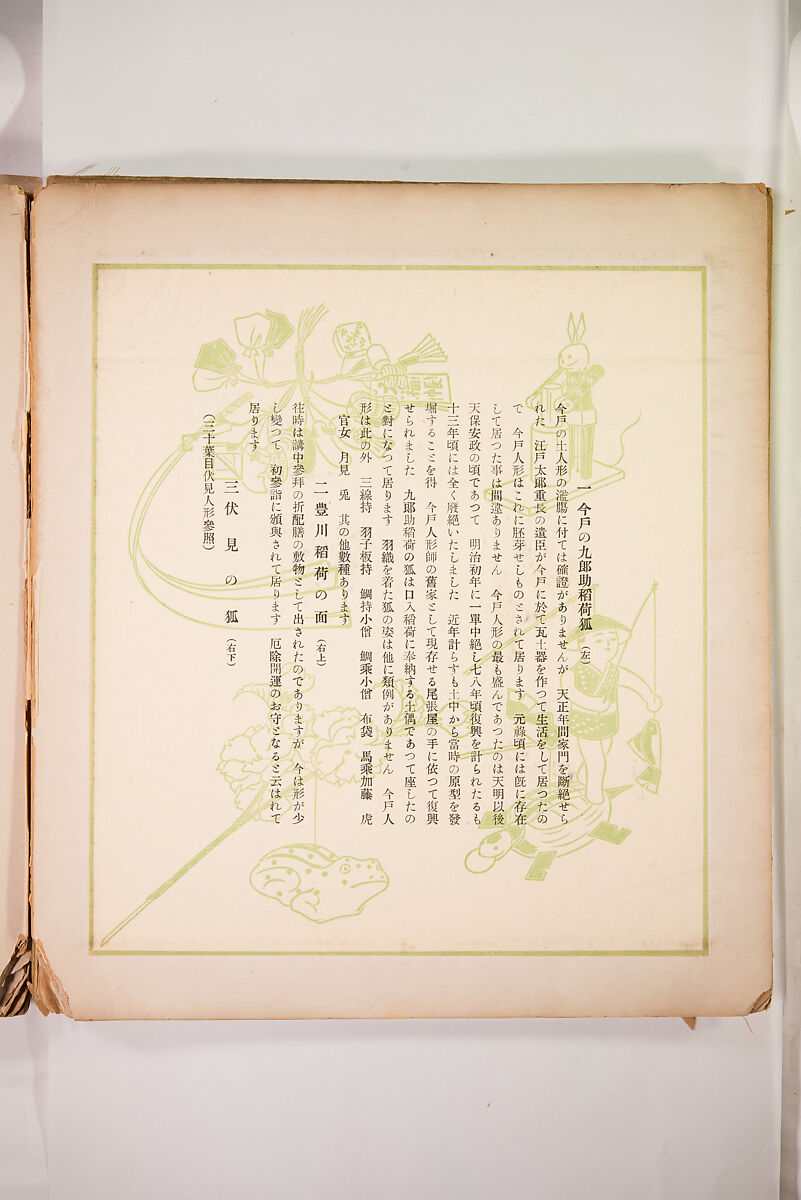 一 今戸の九郎助稲荷狐 (左)
今戸の土人形の濫觴に付ては確證がありませんが 天正年間家門を斷絶せら
れた 江戸太郎重長の遺臣が今戸に於て瓦土器を作つて生活をして居つたの
で 今戸人形はこれに胚芽せしものとされて居ります 元祿頃には既に存在
して居つた事は間違ありません 今戸人形の最も盛んであつたのは天明以後
天保安政の頃であつて 明治初年に一單中絶し七八年頃復興を計られたるも
十三年頃には全く廢絶いたしました 近年計らずも土中から當時の原型を發
堀することを得 今戸人形師の舊家として現存せる尾張屋の手に依つて復興
せられました 九郎助稲荷の狐は口入稲荷に奉納する土偶であつて座したの
と對になつて居ります 羽織を着た狐の姿は他に類例がありません 今戸人
形は此の外 三線持 羽子板持 鯛持小僧 鯛乘小僧 布袋 馬乘加藤 虎
官女 月見 兎 其の他數種あります
二 豊川稲荷の面 (右上)
往時は講中參拜の折配膳の敷物として出されたのでありますが 今は形が少
し變つて 初參詣に頒與されて居ります 厄除開運のお守となると云はれて
居ります
三 伏見の狐 (右下)
(三十葉目伏見人形參照)